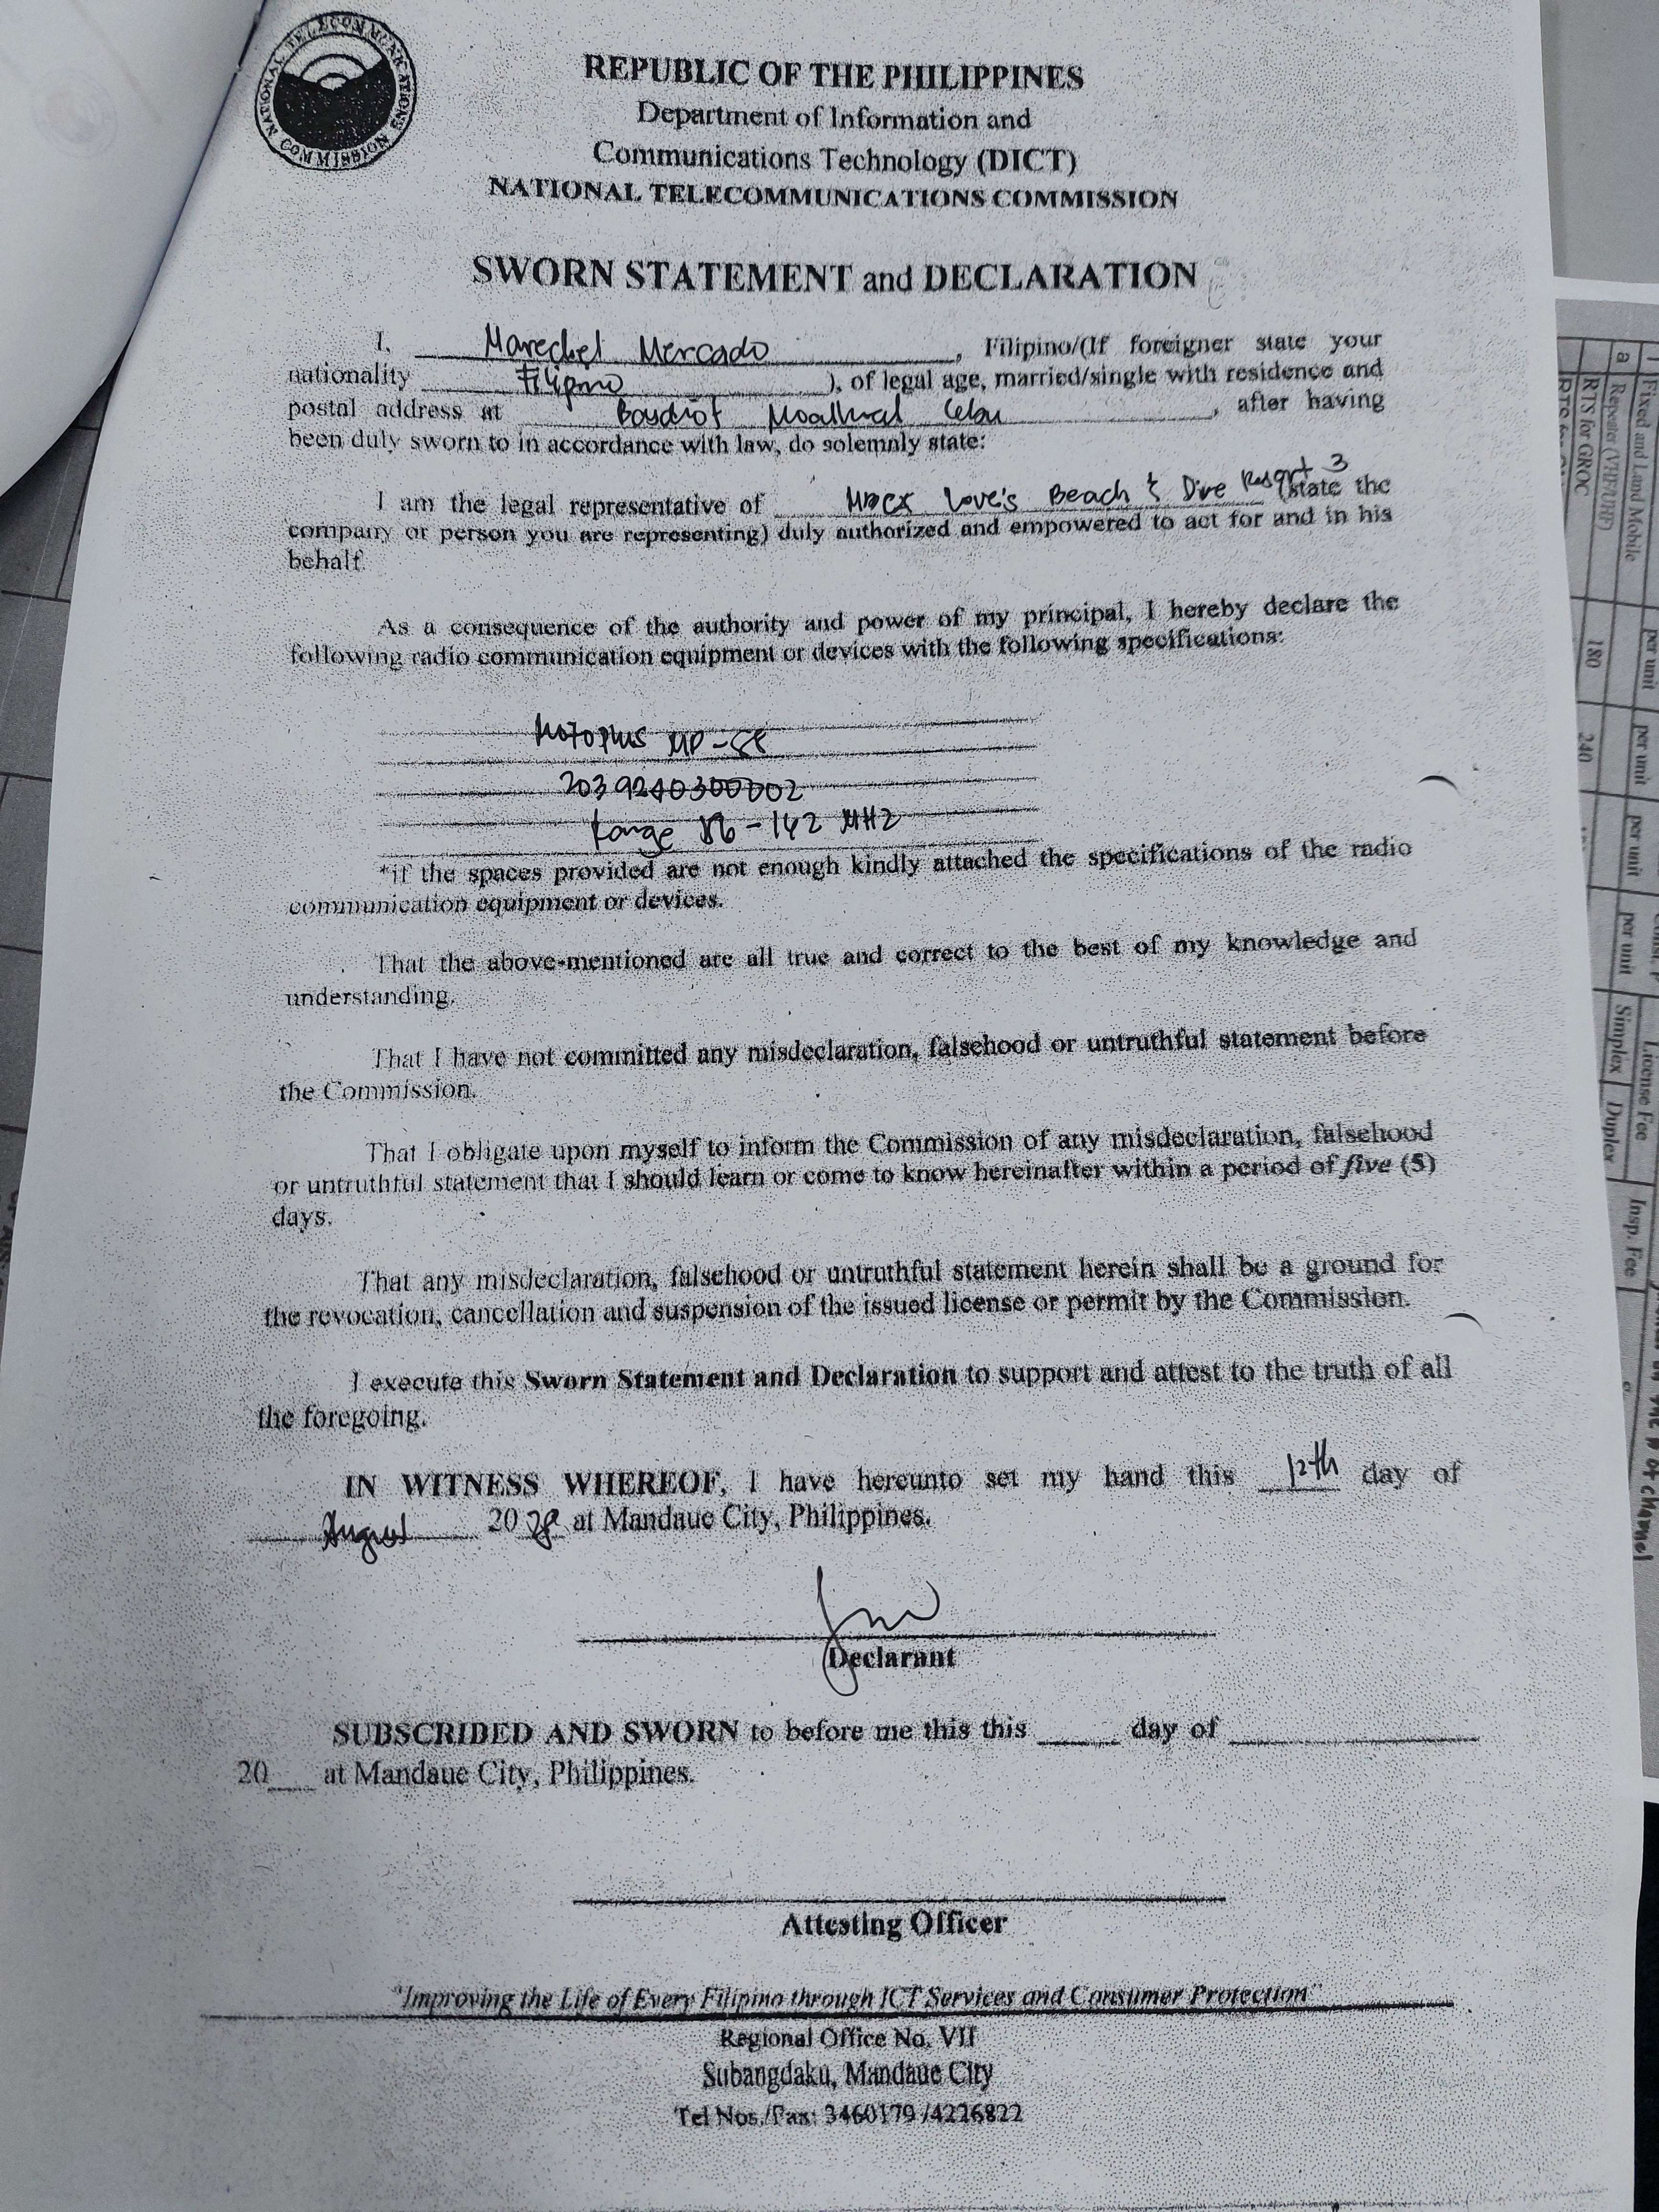 NATIONAL TELECOMMUNICATIONS COMMISSION
REPUBLIC OF THE PHILIPPINES
Department of Information and
Communications Technology (DICT)
NATIONAL TELECOMMUNICATIONS COMMISSION
SWORN STATEMENT and DECLARATION
I, Marechel Mercado, Filipino/(If foreigner state your
nationality Filipino ), of legal age, married/single with residence and
postal address at Basdiot Moalboal Cebu, after having
been duly sworn to in accordance with law, do solemnly state:
I am the legal representative of Love's Beach & Dive Resort 3 (state the
company or person you are representing) duly authorized and empowered to act for and in his
behalf.
As a consequence of the authority and power of my principal, I hereby declare the
following radio communication equipment or devices with the following specifications:
Motoplus
2039240300002
Range - 142 MHz
*if the spaces provided are not enough kindly attached the specifications of the radio
communication equipment or devices.
That the above-mentioned are all true and correct to the best of my knowledge and
understanding.
That I have not committed any misdeclaration, falsehood or untruthful statement before
the Commission.
That I obligate upon myself to inform the Commission of any misdeclaration, falsehood
or untruthful statement that I should learn or come to know hereinafter within a period of five (5)
days.
That any misdeclaration, falsehood or untruthful statement herein shall be a ground for
the revocation, cancellation and suspension of the issued license or permit by the Commission.
I execute this Sworn Statement and Declaration to support and attest to the truth of all
the foregoing.
IN WITNESS WHEREOF, I have hereunto set my hand this 12th day of
August 20 at Mandaue City, Philippines.
Declarant
SUBSCRIBED AND SWORN to before me this this ____ day of ____
20__ at Mandaue City, Philippines.
Attesting Officer
"Improving the Life of Every Filipino through ICT Services and Consumer Protection"
Regional Office No. VII
Subangdaku, Mandaue City
Tel Nos./Fax: 3460179 /4226822
Fixed and Land Mobile
a Repeater (VHF/UHF)
RTS for GROC
per unit
180
per unit
240
per unit
per unit
License Fee
Simplex Duplex
Insp. Fee
of channel